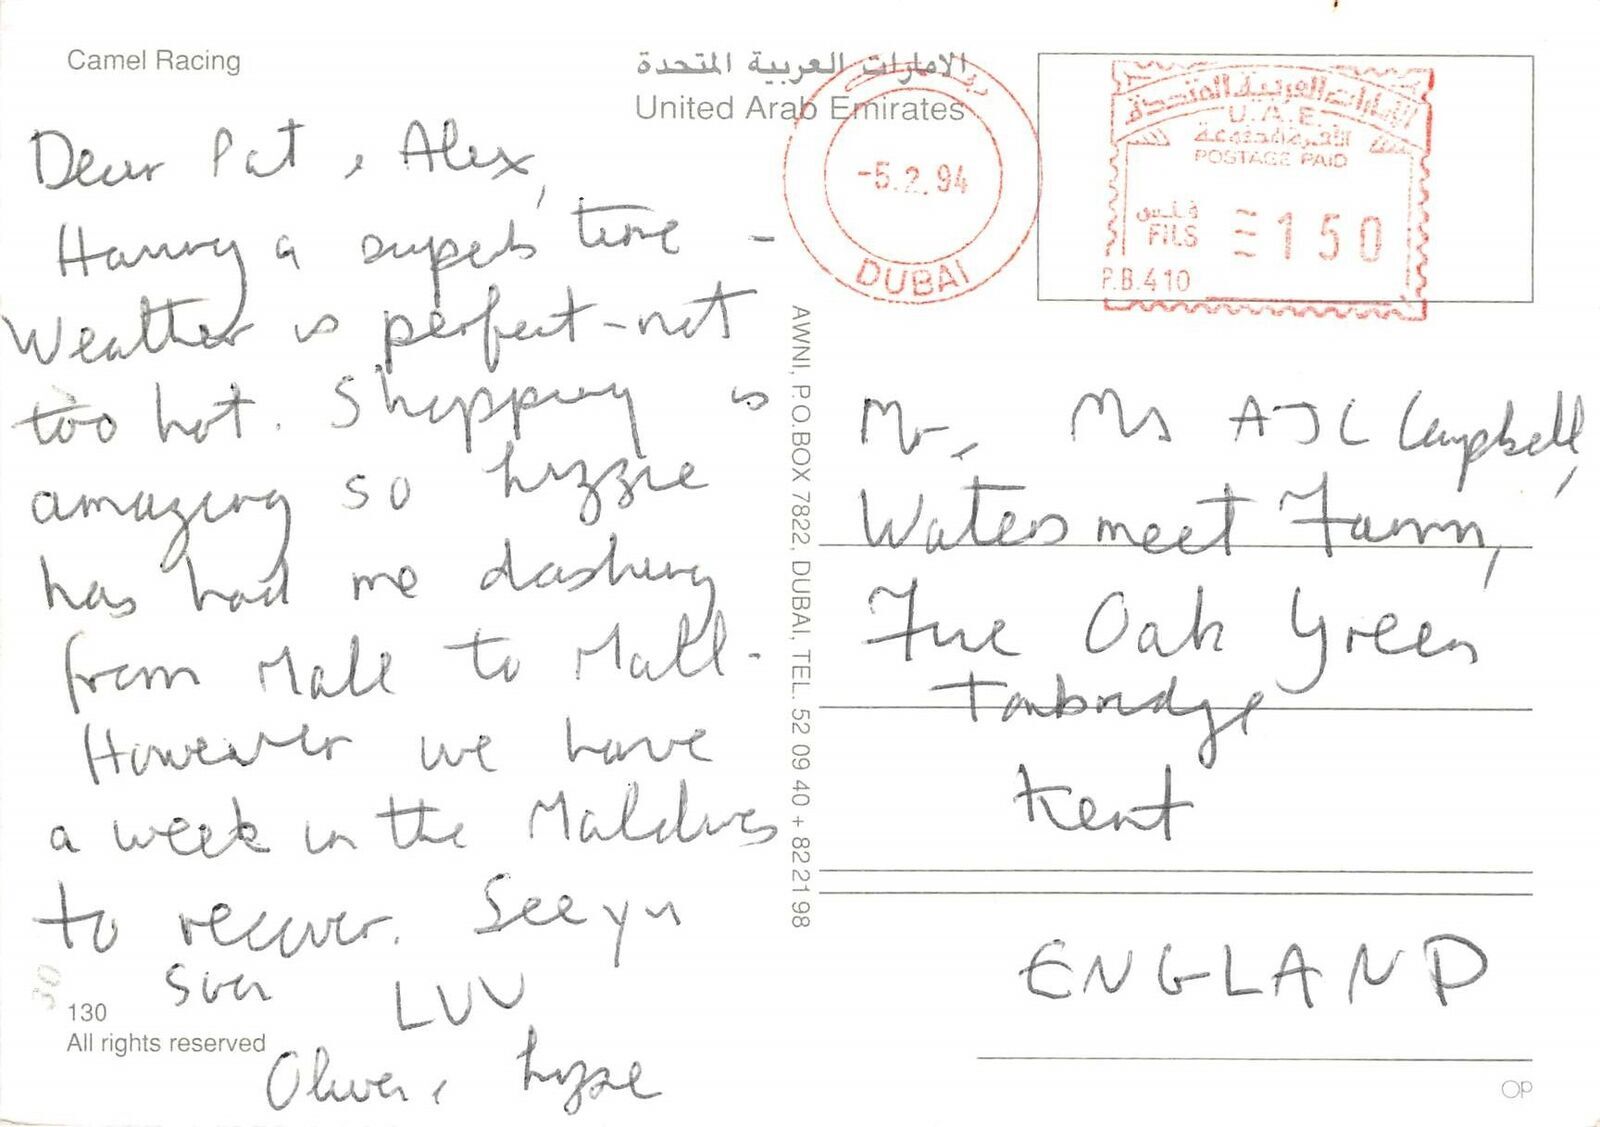 Camel Racing
الامارات العربية المتحدة
United Arab Emirates
Dear Pat & Alex,
Having a superb time -
Weather is perfect - not
too hot. Shopping is
amazing so Lizzie
has had me dashing
from Mall to Mall -
However we have
a week in the Maldives
to recover. See you
soon LUV
Oliver & Lizzie
30
130
All rights reserved
AWNI, P.O.BOX 7822, DUBAI, TEL. 52 09 40 + 82 21 98
دبي
-5.2.94
DUBAI
الإمارات العربية المتحدة
U.A.E.
الأجرة مدفوعة
POSTAGE PAID
فلس
FILS
150
P.B.410
Mr & Mrs AJC Campbell,
Watersmeet Farm,
Five Oak Green
Tonbridge
Kent
ENGLAND
OP